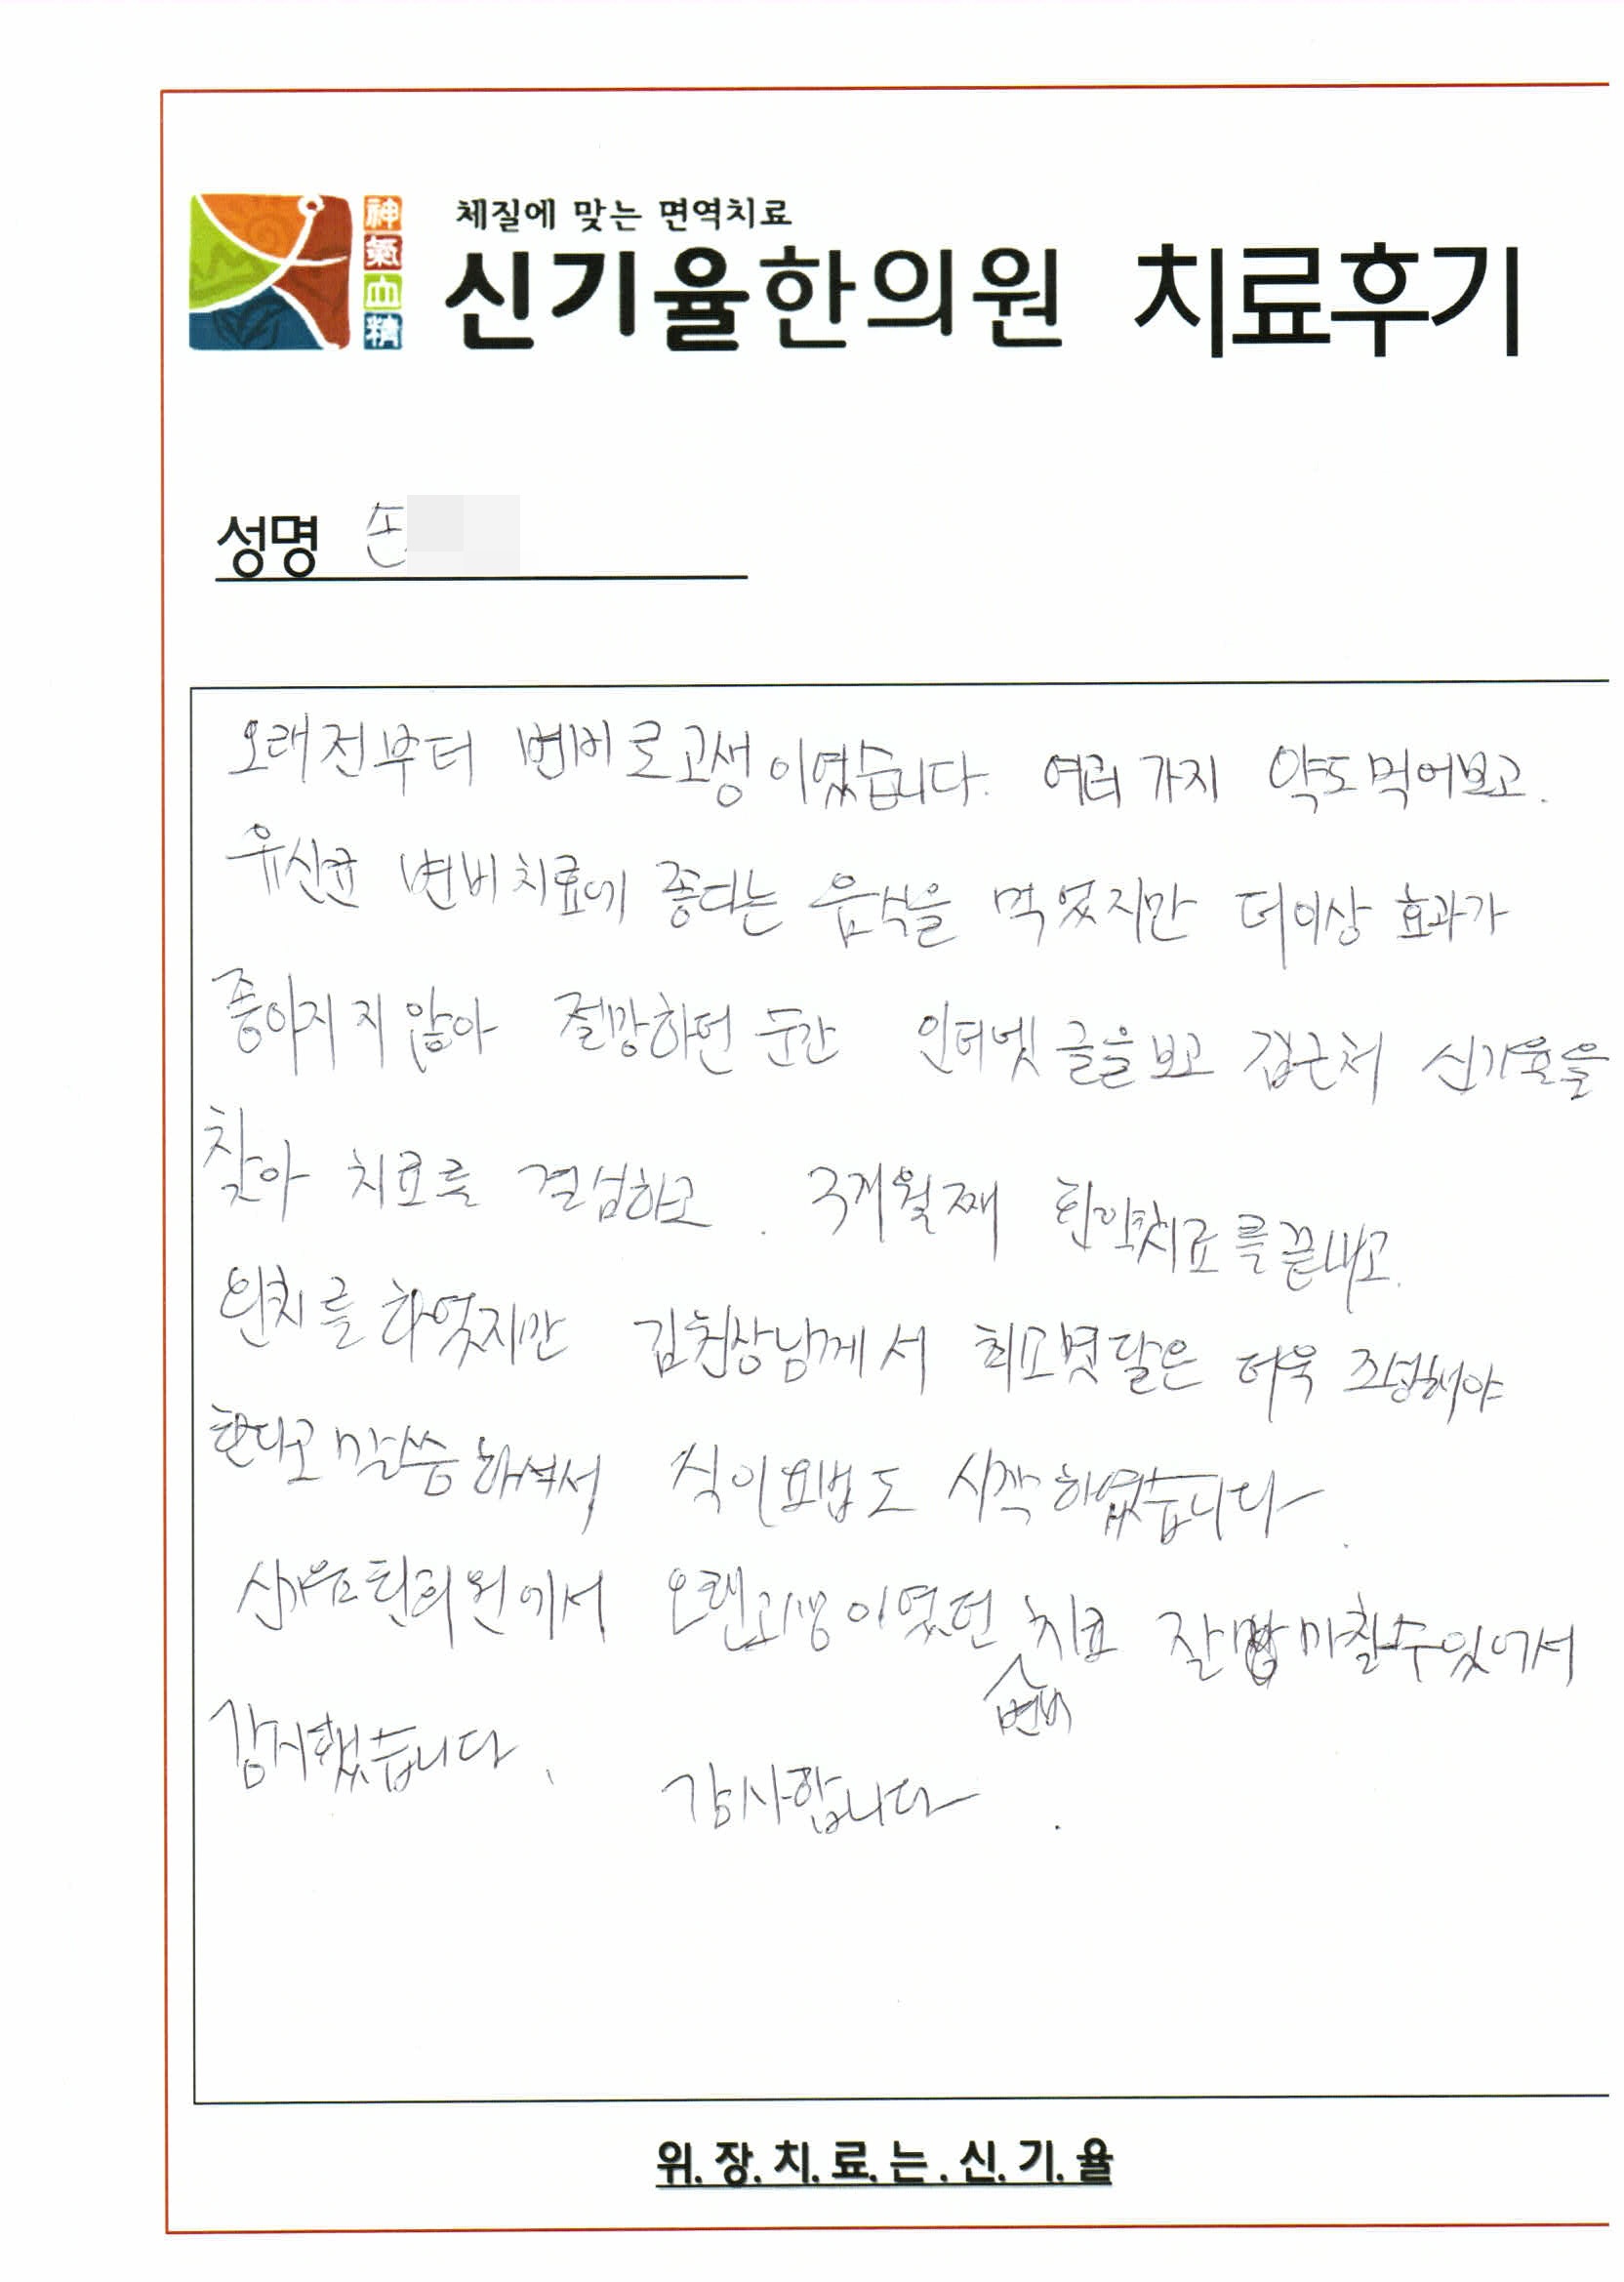 神氣血精
체질에 맞는 면역치료
신기율한의원 치료후기
성명 손
오래전부터 변비로고생이였습니다. 여러가지 약도먹어보고.
유산균 변비치료에 좋다는 음식을 먹었지만 더이상 효과가
좋아지지않아 절망하던 순간 인터넷 글을보고 집근처 신기율을
찾아 치료를 결심하고. 3개월째 한약치료를끝내고.
완치를 하였지만 김천상님께서 최고몇달은 더욱 조성해야
한다고 말씀하셔서 식이요법도 시작하였습니다.
신기율한의원에서 오랜고생이였던 치료 잘 마칠수있어서
변비
감사했습니다. 감사합니다.
위.장.치.료.는.신.기.율